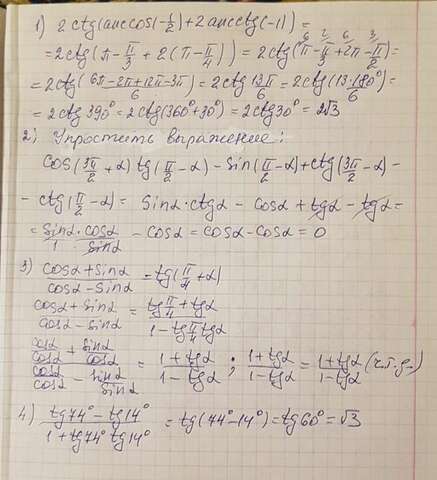 1) 2ctg(arccos(-1/2)+2arcctg(-1))=
=2ctg(π-π/3+2(π-π/4))=2ctg(π-π/3+2π-π/2)=
=2ctg((6π-2π+12π-3π)/6)=2ctg 13π/6=2ctg(13·180°/6)=
=2ctg 390°=2ctg(360°+30°)=2ctg30°=2√3
2) Упростить выражение:
cos(3π/2+α)tg(π/2-α)-sin(π/2-α)+ctg(3π/2-α)-
-ctg(π/2-α)=sinα·ctgα-cosα+tgα-tgα=
=sinα/1·cosα/sinα-cosα=cosα-cosα=0
3) (cosα+sinα)/(cosα-sinα)=tg(π/4+α)
(cosα+sinα)/(cosα-sinα)=(tgπ/4+tgα)/(1-tgπ/4tgα)
(cosα/cosα+sinα/cosα)/(cosα/cosα-sinα/cosα)=(1+tgα)/(1-tgα); (1+tgα)/(1-tgα)=(1+tgα)/(1-tgα) (ч.т.д.)
4) (tg74°-tg14°)/(1+tg74°tg14°)=tg(74°-14°)=tg60°=√3